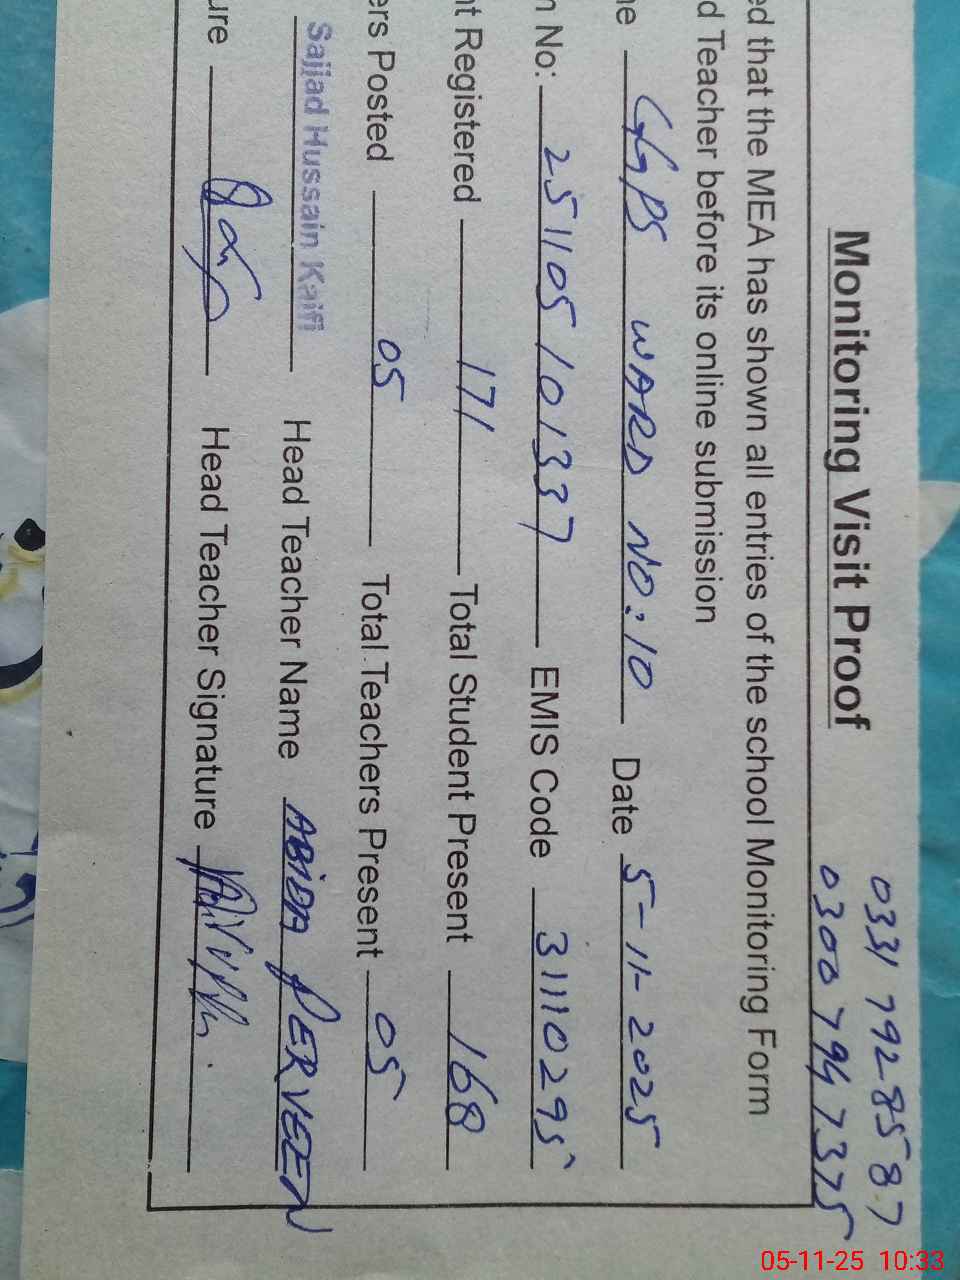 0331 7928587
Monitoring Visit Proof 0300 7947375
ed that the MEA has shown all entries of the school Monitoring Form
d Teacher before its online submission
me GGPS WARD NO:10 Date 5-11-2025
n No: 251105/10137 EMIS Code 31110295
nt Registered 171 Total Student Present 168
ers Posted 05 Total Teachers Present 05
Sajjad Hussain Kaifi Head Teacher Name ABIDA PERVEEN
ure Head Teacher Signature
05-11-25 10:33